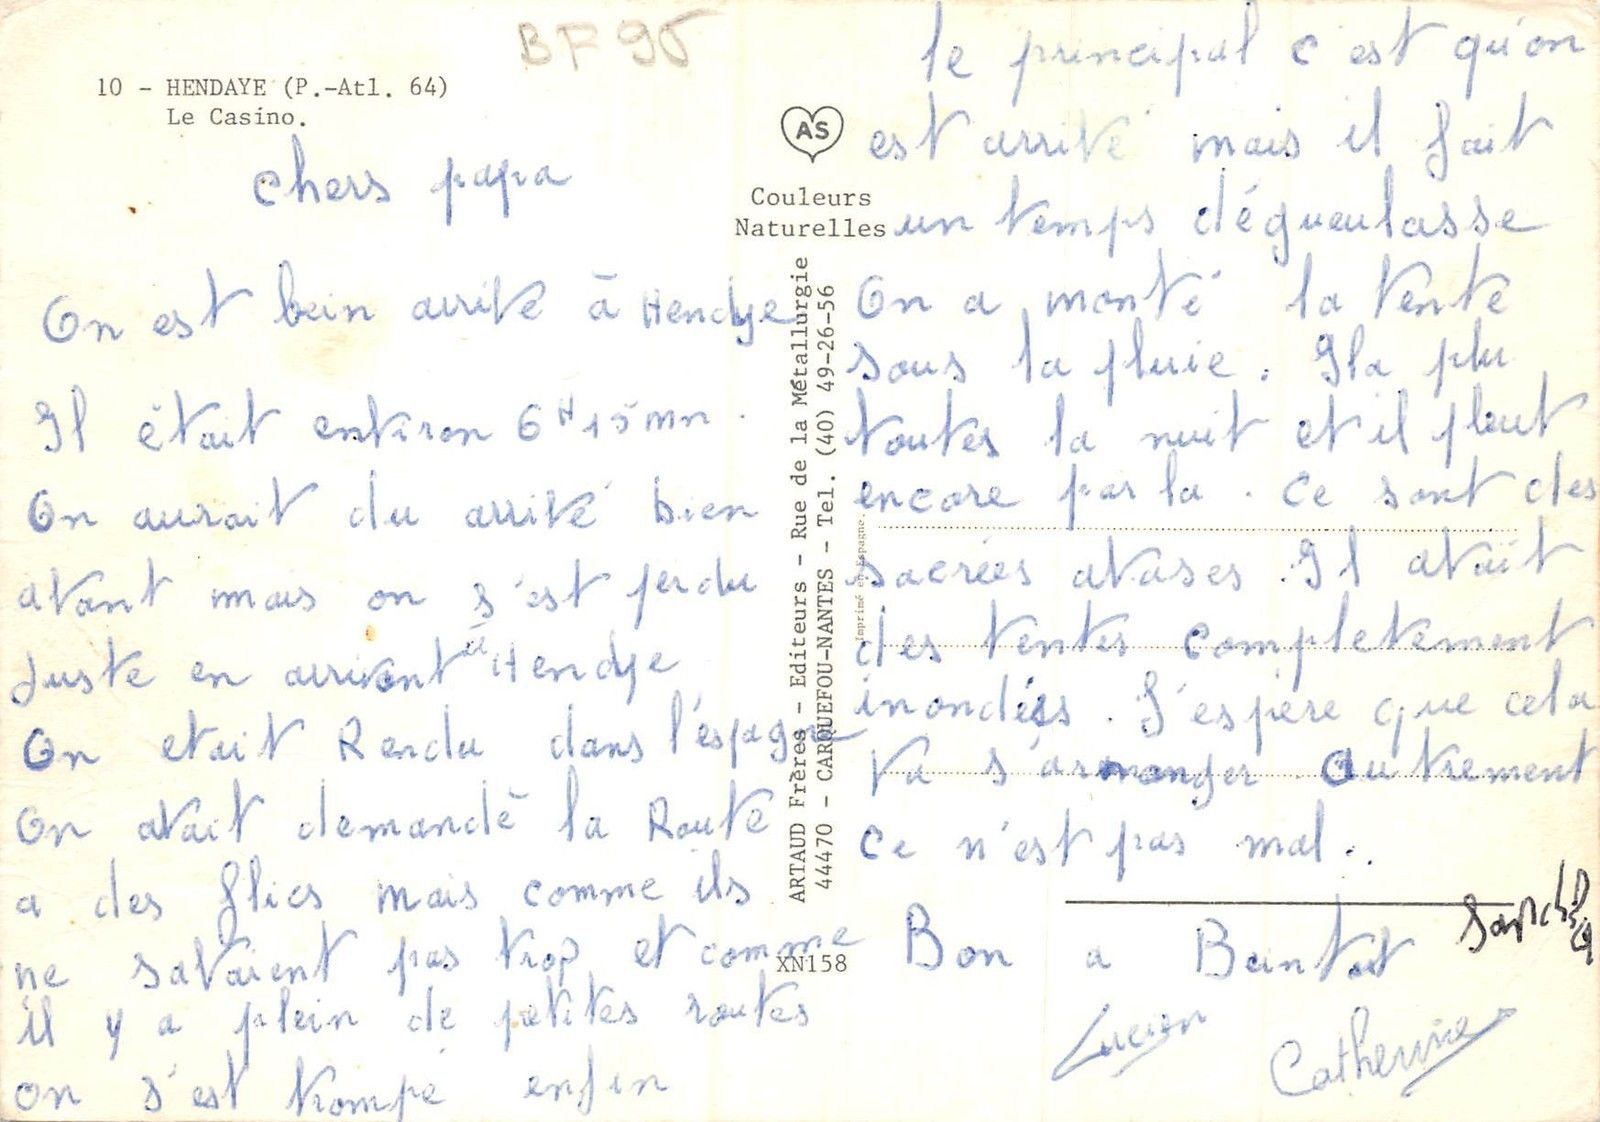 BF95
10 - HENDAYE (P.-Atl. 64)
Le Casino.
chers papa
On est bein arrivé à Hendye
Il était environ 6H15mn.
On aurait du arrivé bien
avant mais on s'est perdu
Juste en arrivant à Hendye
On etait Rendu dans l'éspagne
On avait demandé la Route
a des flics mais comme ils
ne savaient pas trop et comme
il y a plein de petites routes
on s'est trompé enfin
AS
Couleurs
Naturelles
ARTAUD Frères - Editeurs - Rue de la Métallurgie
44470 - CARQUEFOU-NANTES - Tel. (40) 49-26-56
Imprimé en Espagne.
XN158
le principal c'est qu'on
est arrivé mais il fait
un temps dégueulasse
On a monté la tente
sous la pluie. Il a plu
toutes la nuit et il pleut
encore par la. Ce sont des
sacrées avases. Il avait
des tentes completement
inondées. J'espère que cela
va s'arranger autrement
ce n'est pas mal..
Bon a Beintot
Lucien
Catherine